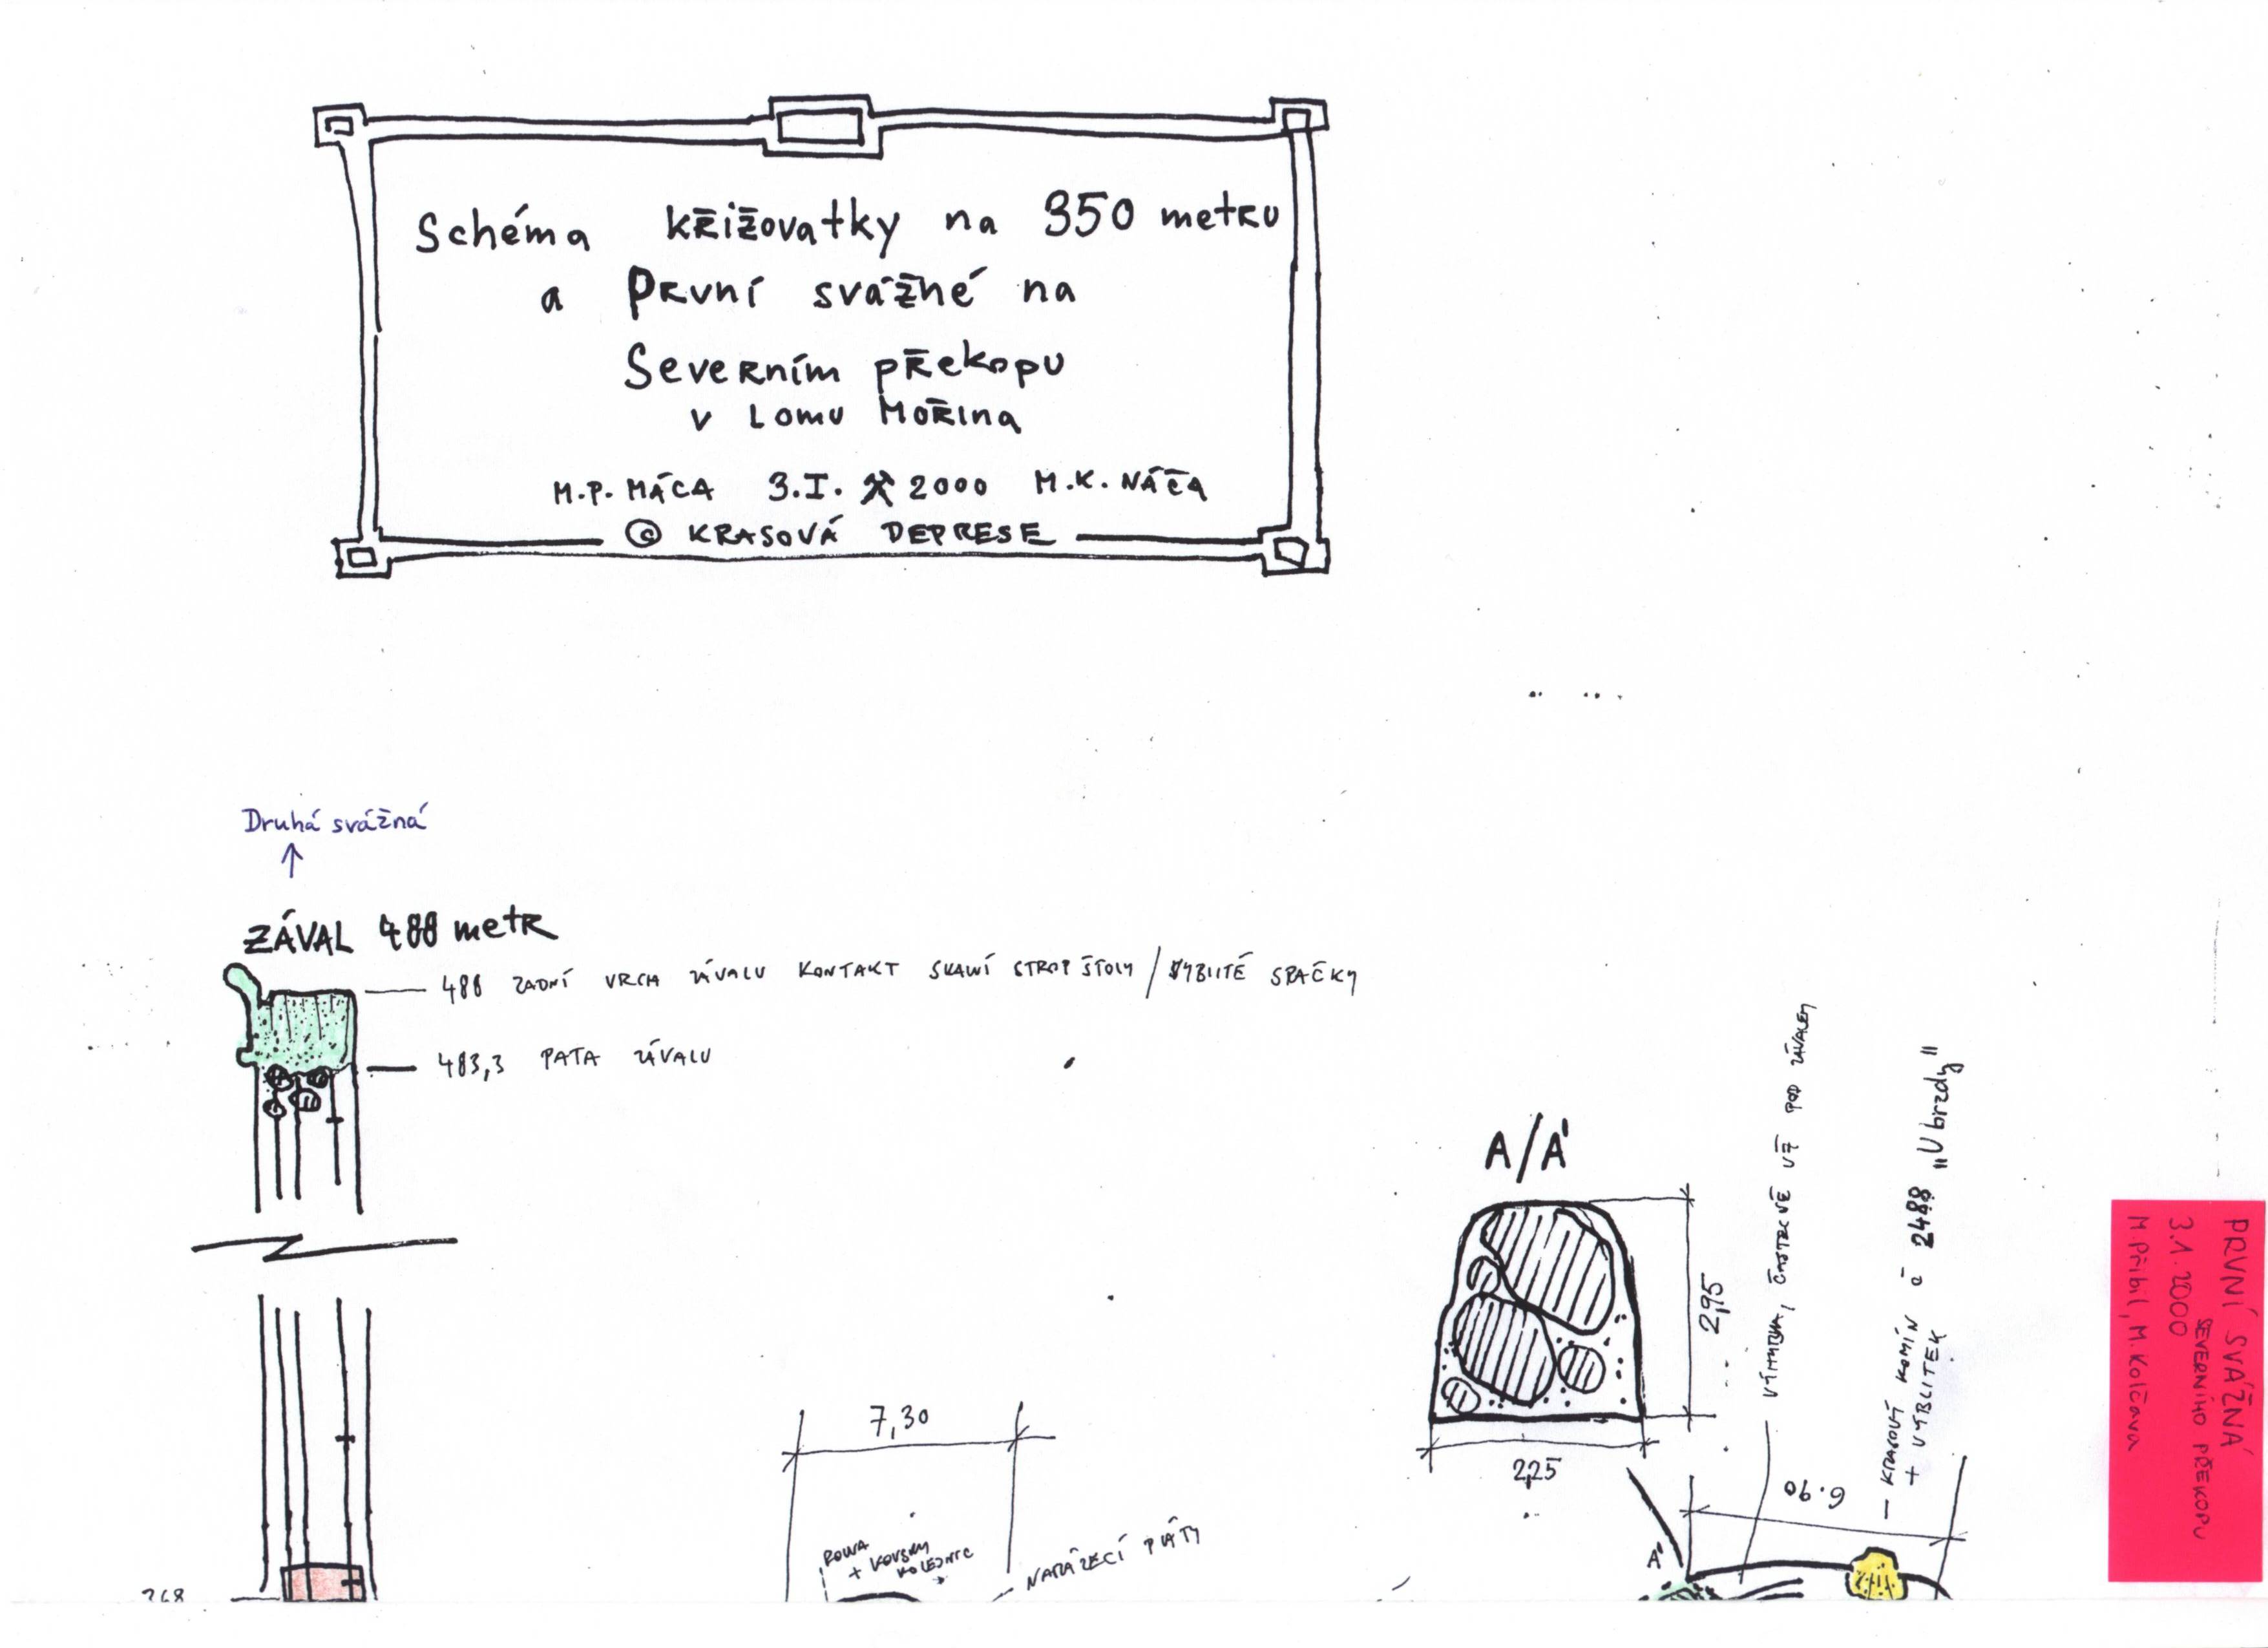 Schéma křižovatky na 350 metru
a První svážné na
Severním překopu
v Lomu Mořina
M.P. MÁCA 3.I. ⚒ 2000 M.K. NÁČA
© KRASOVÁ DEPRESE
Druhá svážná
↑
ZÁVAL 488 metr
488 ZADNÍ VRCH ZÁVALU KONTAKT STROP ŠTOLY /
483,3 PATA ZÁVALU
A/A'
2,95
2,25
VÝHYBKA, ČÁSTEČNĚ UŽ POD ZÁVALEM
KRASOVÝ KOMÍN č 2488 „U brzdy"
+ VÝBLITEK
6.90
A'
7,30
+ KOUSKY
KOLEJNIC
NARÁŽECÍ PLÁTY
268
PRVNÍ SVÁŽNÁ
SEVERNÍHO PŘEKOPU
3.1.2000
M.Přibil, M.Kolčava